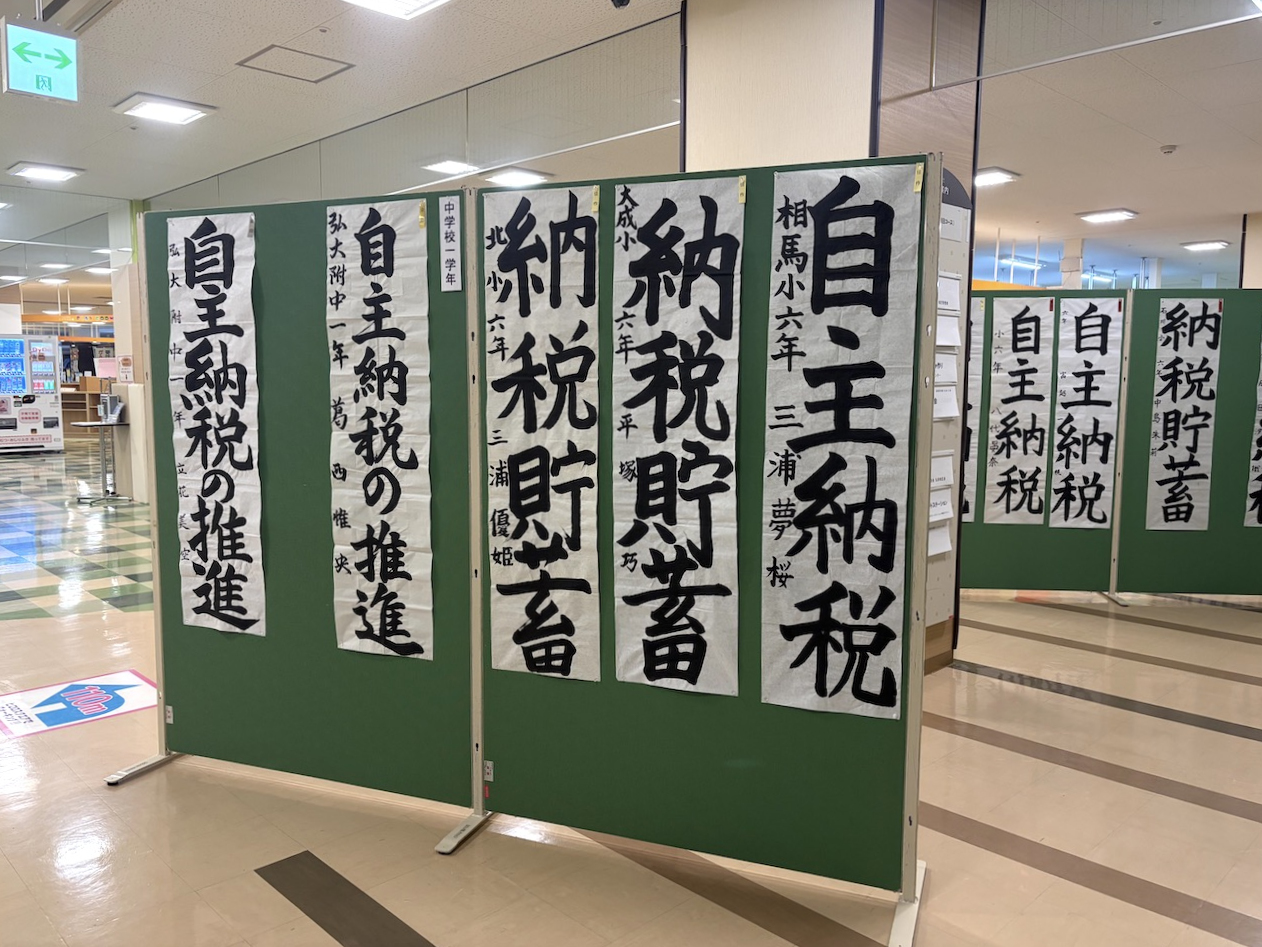 自主納税
相馬小六年 三浦夢桜
納税貯蓄
大成小六年 平塚巧
納税貯蓄
北小六年 三浦優姫
中学校一学年
自主納税の推進
弘大附中一年 葛西惟央
自主納税の推進
弘大附中一年 立花美空
納税貯蓄
自主納税
自主納税
110m